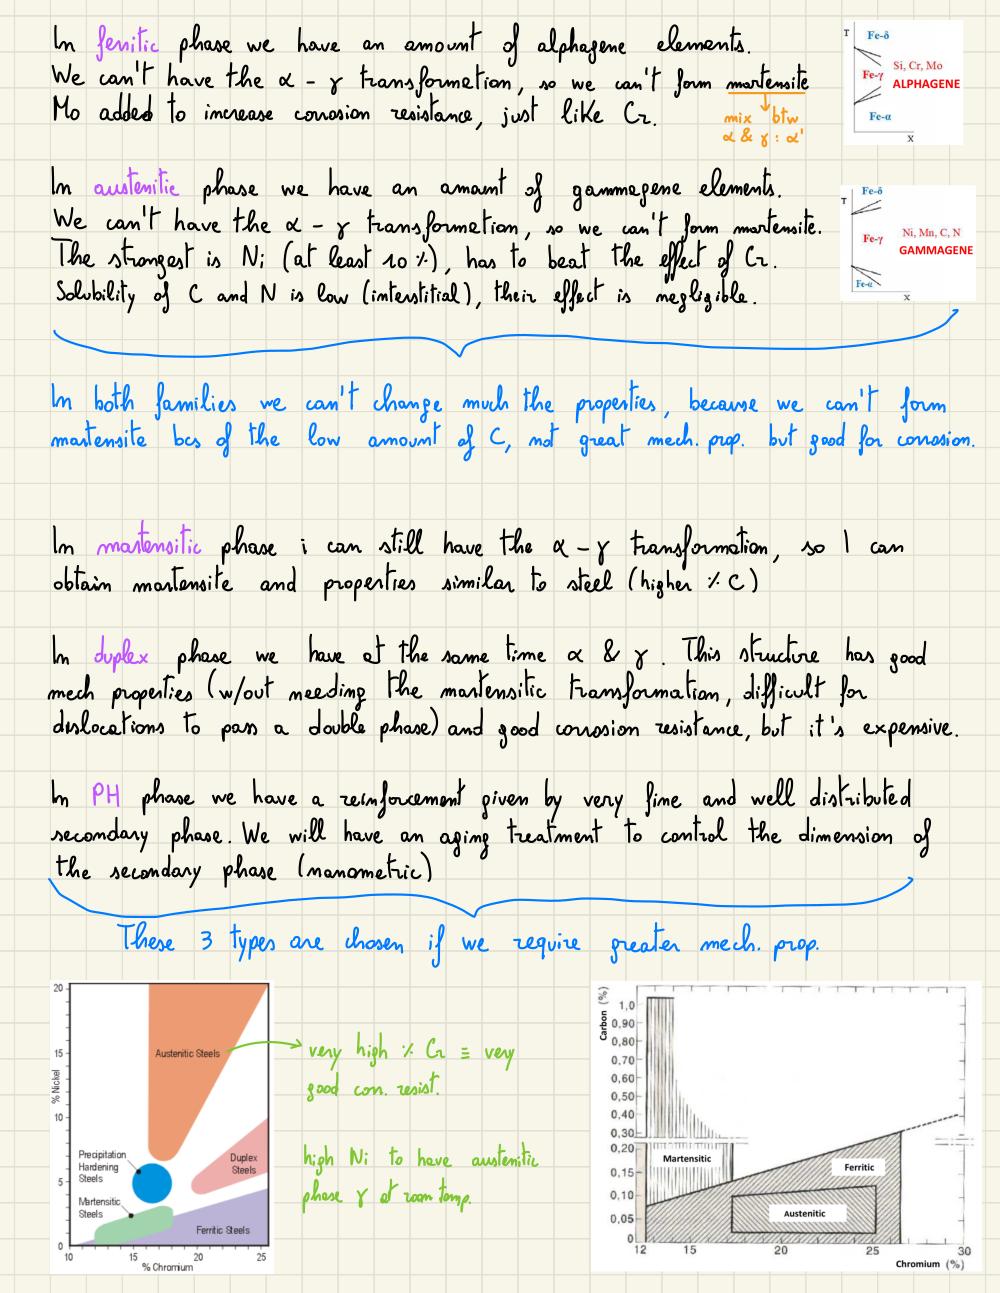 In ferritic phase we have an amount of alphagene elements.
We can't have the α - γ transformation, so we can't form martensite
Mo added to increase corrosion resistance, just like Cr.
mix btw
α & γ : α'
T
Fe-δ
Si, Cr, Mo
Fe-γ
ALPHAGENE
Fe-α
X
In austenitic phase we have an amount of gammagene elements.
We can't have the α - γ transformation, so we can't form martensite.
The strongest is Ni (at least 10 %), has to beat the effect of Cr.
Solubility of C and N is low (interstitial), their effect is negligible.
Fe-δ
T
Ni, Mn, C, N
Fe-γ
GAMMAGENE
Fe-α
X
In both families we can't change much the properties, because we can't form
martensite bcs of the low amount of C, not great mech. prop. but good for corrosion.
In martensitic phase i can still have the α - γ transformation, so I can
obtain martensite and properties similar to steel (higher % C)
In duplex phase we have at the same time α & γ. This structure has good
mech properties (w/out needing the martensitic transformation, difficult for
dislocations to pass a double phase) and good corrosion resistance, but it's expensive.
In PH phase we have a reinforcement given by very fine and well distributed
secondary phase. We will have an aging treatment to control the dimension of
the secondary phase (nanometric)
These 3 types are chosen if we require greater mech. prop.
20
15
10
5
0
% Nickel
Austenitic Steels
Precipitation
Hardening
Steels
Duplex
Steels
Martensitic
Steels
Ferritic Steels
10 15 20 25
% Chromium
very high % Cr ≡ very
good corr. resist.
high Ni to have austenitic
phase γ at room temp.
Carbon (%)
1,0
0,90
0,80
0,70
0,60
0,50
0,40
0,30
0,20
0,15
0,10
0,05
0
Martensitic
Ferritic
Austenitic
12 15 20 25 30
Chromium (%)